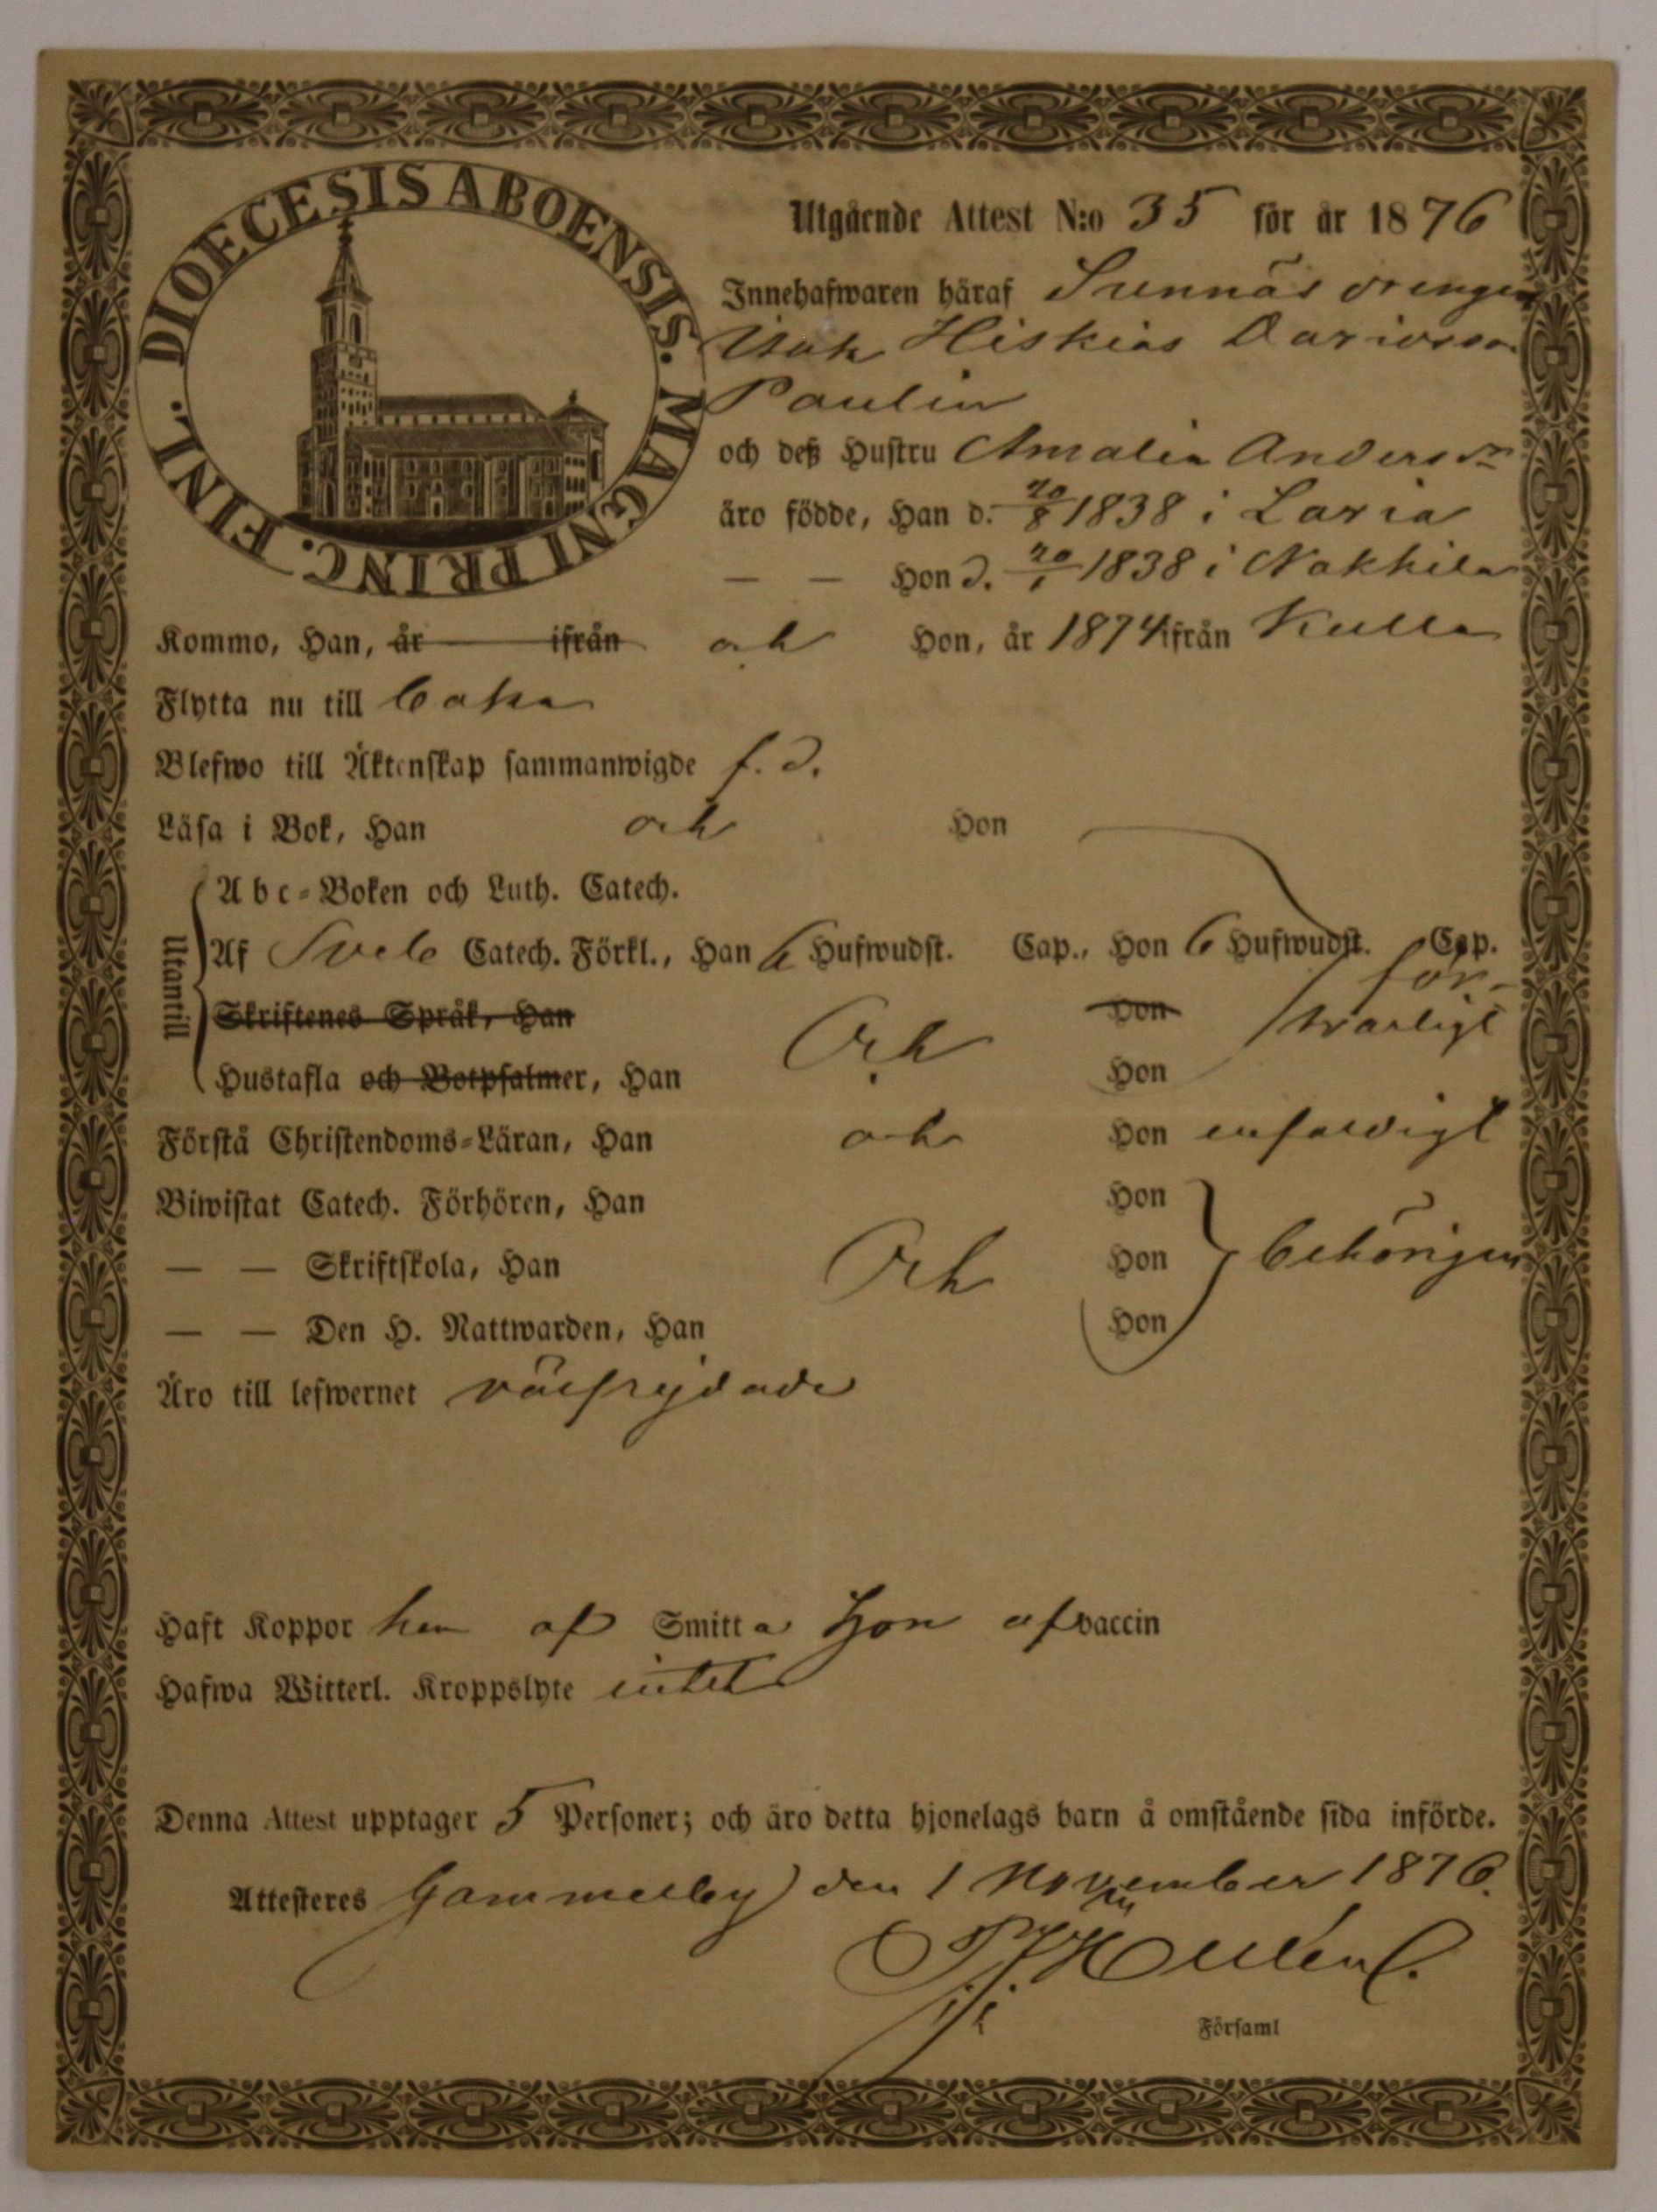 DIOECESIS ABOENSIS. MAGNI PRINC. FINL.
Utgående Attest N:o 35 för år 1876
Innehafwaren häraf Sunnäs drengen
Isak Hiskias Davidsson
Paulin
och deß Hustru Amalia Andersdr
äro födde, Han d. 20/8 1838 i Lavia
— — Hon d. 20/1 1838 i Nakkila
Kommo, Han, år ifrån och Hon, år 1874 ifrån Kulla
Flytta nu till
Blefwo till Äktenskap sammanwigde f. d.
Läsa i Bok, Han och Hon
Utantill
Abc-Boken och Luth. Catech.
Af Sveb Catech. Förkl., Han 6 Hufwudst. Cap., Hon 6 Hufwudst. Cap.
för-
Skriftenes Språk, Han Hon svarligt
Och
Hustafla och Botpsalmer, Han Hon
Förstå Christendoms-Läran, Han och Hon enfaldigt
Biwistat Catech. Förhören, Han Hon
— — Skriftskola, Han Och Hon behörigen
— — Den H. Nattwarden, Han Hon
Äro till lefwernet välfrejdade
Haft Koppor han af Smitta Hon af vaccin
Hafwa Witterl. Kroppslyte intet
Denna Attest upptager 5 Personer; och äro detta hjonelags barn å omstående sida införde.
Attesteres Gammelby den 1 November 1876.
Församl